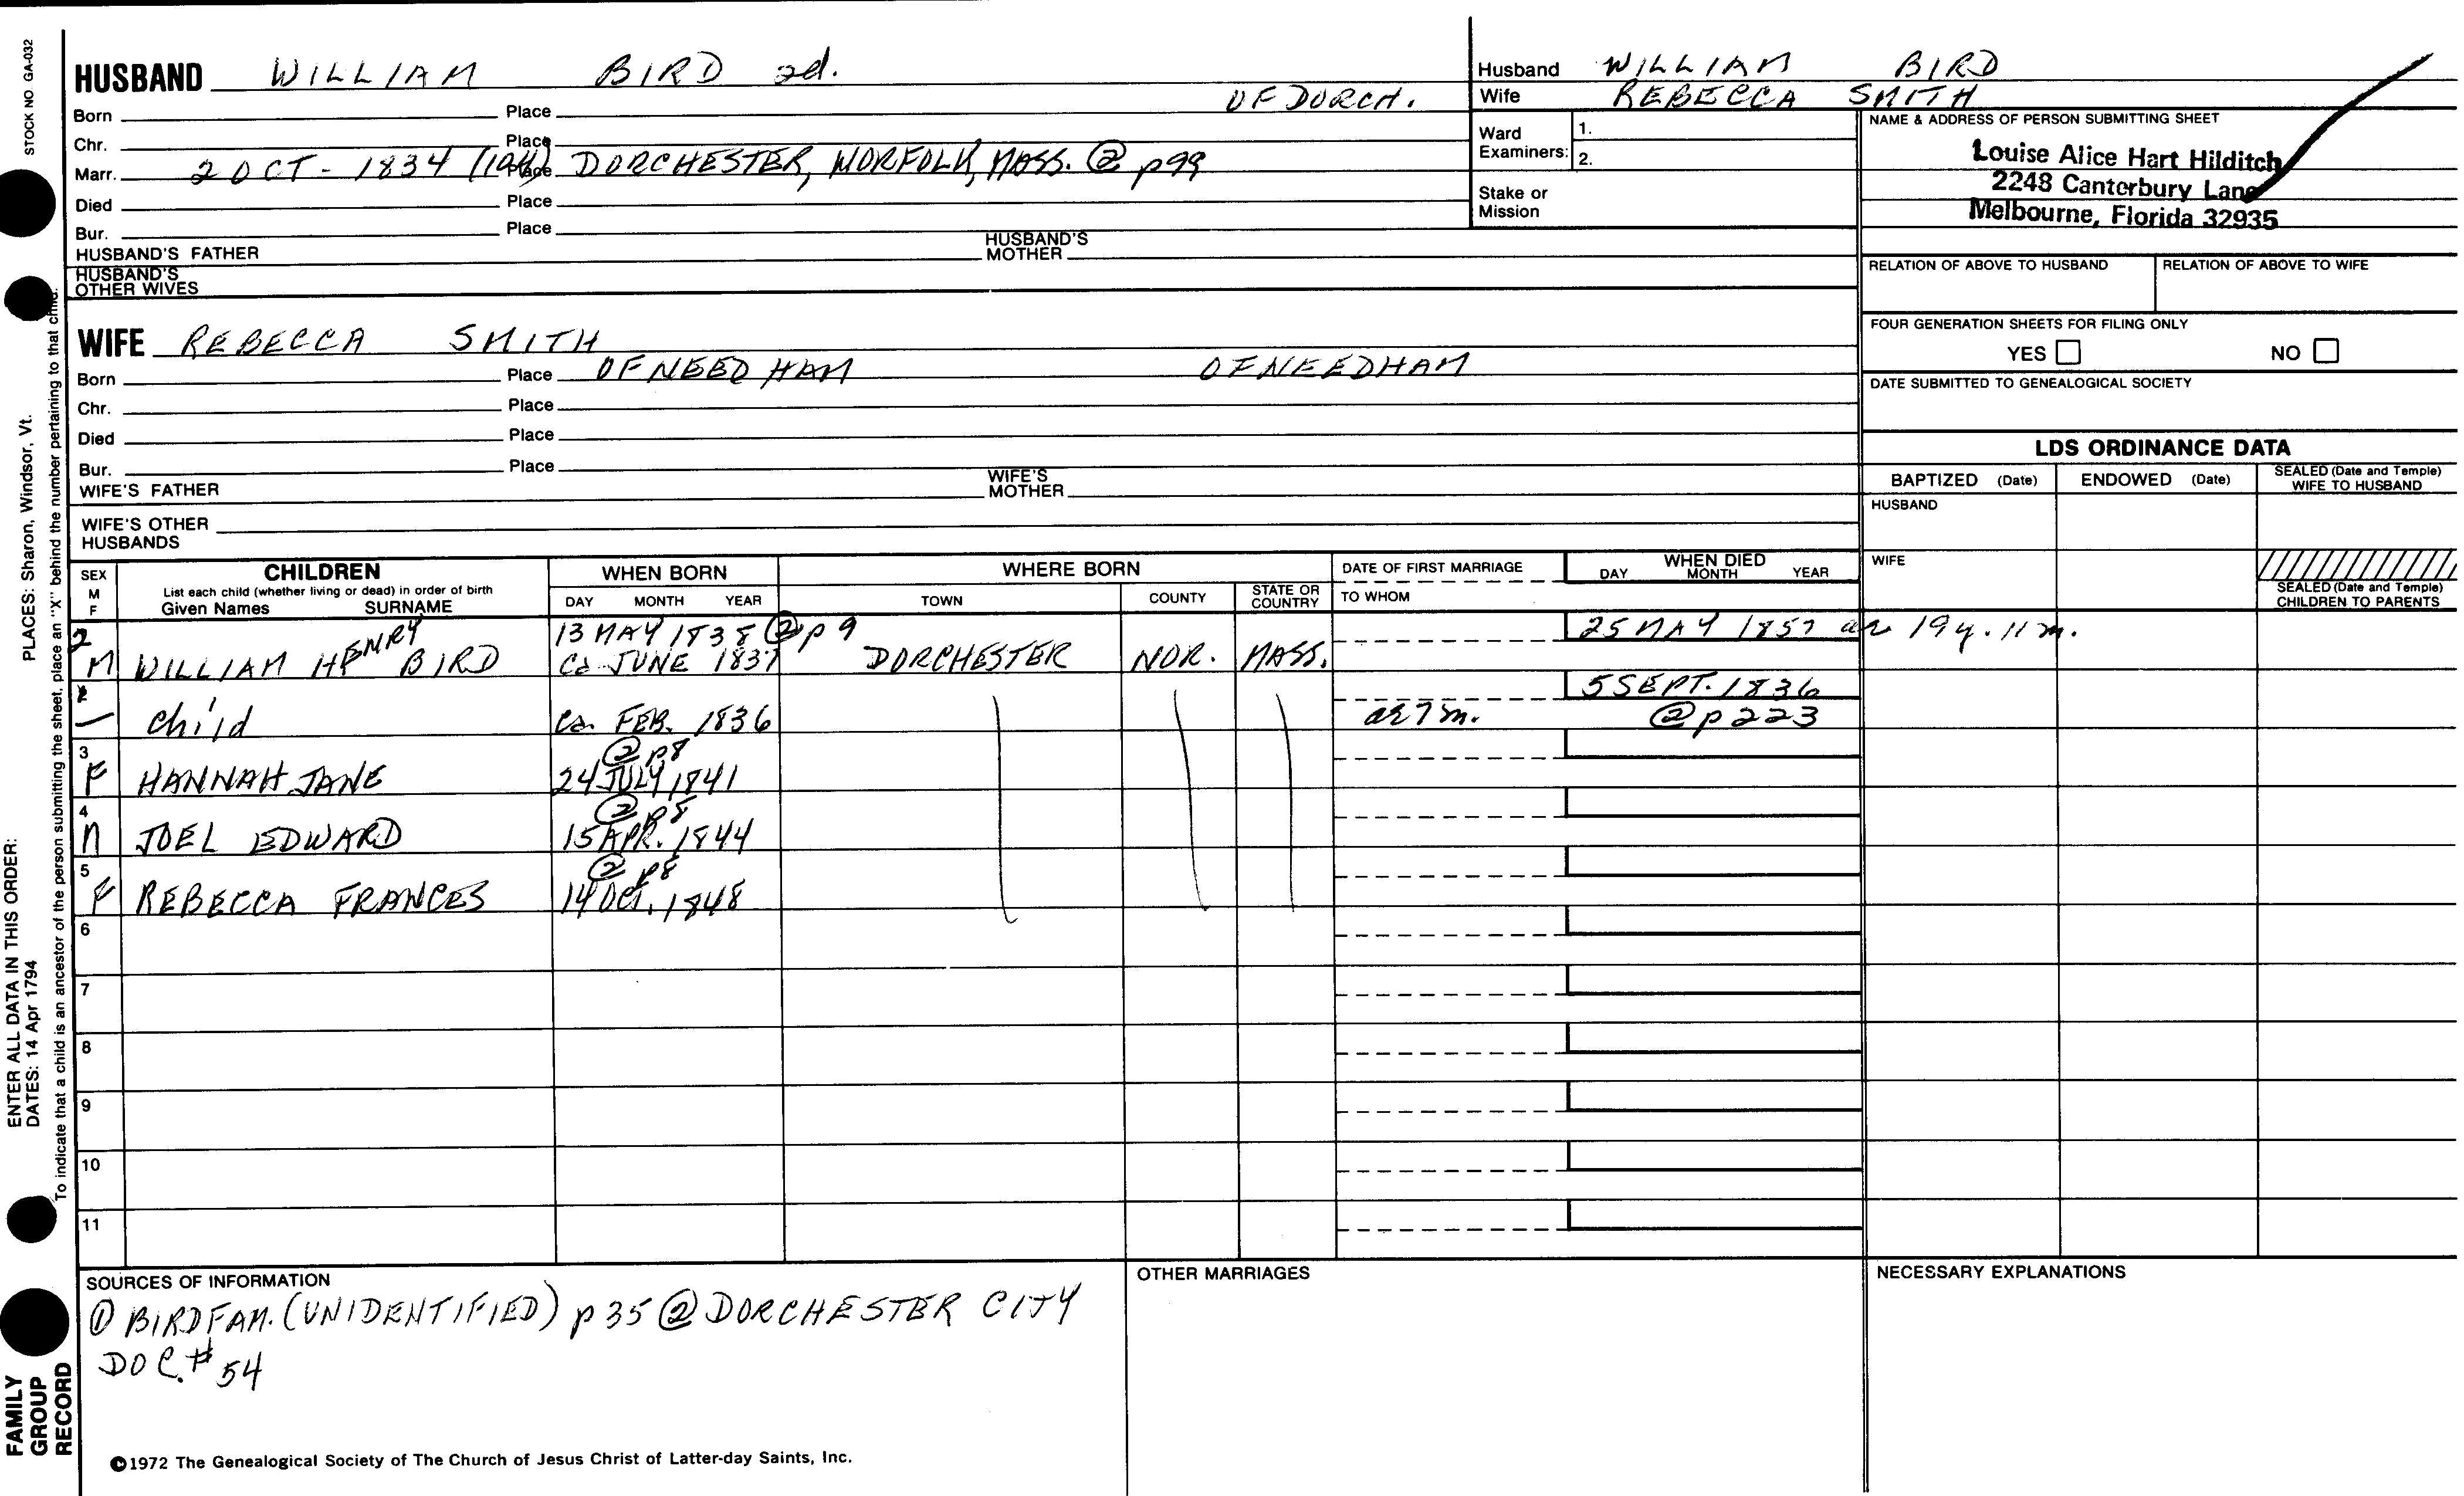 STOCK NO GA-032
PLACES: Sharon, Windsor, Vt.
ENTER ALL DATA IN THIS ORDER:
DATES: 14 Apr 1794
To indicate that a child is an ancestor of the person submitting the sheet, place an "X" behind the number pertaining to that child.
FAMILY
GROUP
RECORD
HUSBAND WILLIAM BIRD 2d.
OF DORCH.
Born Place
Chr. Place
Marr. 2 OCT - 1834 Place DORCHESTER, NORFOLK, MASS. ② p99
Died Place
Bur. Place
HUSBAND'S FATHER HUSBAND'S MOTHER
HUSBAND'S
OTHER WIVES
Husband WILLIAM BIRD
Wife REBECCA SMITH
Ward
Examiners: 1.
2.
Stake or
Mission
NAME & ADDRESS OF PERSON SUBMITTING SHEET
Louise Alice Hart Hilditch
2248 Canterbury Lane
Melbourne, Florida 32935
RELATION OF ABOVE TO HUSBAND RELATION OF ABOVE TO WIFE
FOUR GENERATION SHEETS FOR FILING ONLY
YES NO
DATE SUBMITTED TO GENEALOGICAL SOCIETY
WIFE REBECCA SMITH
Born Place OF NEEDHAM OF NEEDHAM
Chr. Place
Died Place
Bur. Place
WIFE'S FATHER WIFE'S MOTHER
WIFE'S OTHER
HUSBANDS
LDS ORDINANCE DATA
BAPTIZED (Date) ENDOWED (Date) SEALED (Date and Temple)
WIFE TO HUSBAND
HUSBAND
WIFE
SEALED (Date and Temple)
CHILDREN TO PARENTS
SEX
M
F
CHILDREN
List each child (whether living or dead) in order of birth
Given Names SURNAME
WHEN BORN
DAY MONTH YEAR
WHERE BORN
TOWN COUNTY STATE OR
COUNTRY
DATE OF FIRST MARRIAGE
TO WHOM
WHEN DIED
DAY MONTH YEAR
2 13 MAY 1838 ② p 9 25 MAY 1857 ae 19y. 11m.
M WILLIAM HENRY BIRD ca JUNE 1837 DORCHESTER NOR. MASS.
5 SEPT. 1836
child ca. FEB. 1836 ae 7m. ② p 223
3 ② p8
F HANNAH JANE 24 JULY 1841
4 ② p8
M JOEL EDWARD 15 APR. 1844
5 ② p8
F REBECCA FRANCES 14 OCT. 1848
6
7
8
9
10
11
SOURCES OF INFORMATION
① BIRD FAM. (UNIDENTIFIED) p 35 ② DORCHESTER CITY
DOC. # 54
OTHER MARRIAGES
NECESSARY EXPLANATIONS
©1972 The Genealogical Society of The Church of Jesus Christ of Latter-day Saints, Inc.